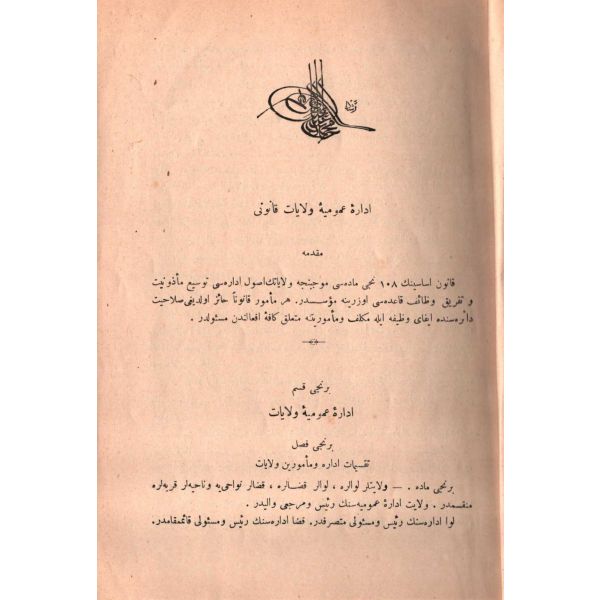 ادارۀ عمومیۀ ولایات قانونی
مقدمه
قانون اساسینك ١٠٨ نجی ماده‌سی موجبنجه ولایاتك اصول اداره‌سی توسیع مأذونیت
و تفریق وظائف قاعده‌سی اوزرینه مؤسسدر. هر مأمور قانوناً حائز اولدیغی صلاحیت
دائره‌سنده ایفای وظیفه ایله مکلف و مأموریتنه متعلق کافۀ افعالندن مسئولدر .
برنجی قسم
ادارۀ عمومیۀ ولایات
برنجی فصل
تقسیمات اداره و مأمورین ولایات
برنجی ماده . — ولایتلر لوالره ، لوالر قضالره ، قضالر نواحی‌یه و ناحیه‌لر قریه‌لره
منقسمدر . ولایت ادارۀ عمومیه‌سنك رئیس و مرجعی والیدر .
لوا اداره‌سنك رئیس و مسئولی متصرفدر. قضا اداره‌سنك رئیس و مسئولی قائممقامدر.